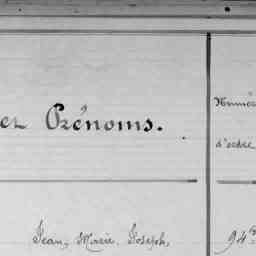 et Prénoms.
Numéro
d'ordre
Jean, Marie, Joseph,
94